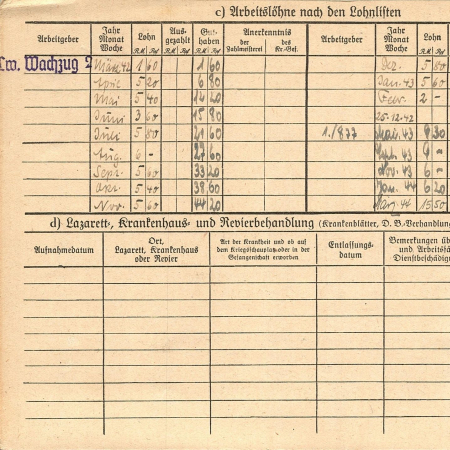 c) Arbeitslöhne nach den Lohnlisten
Arbeitgeber Jahr Monat Woche Lohn R.M. Rpf Aus- gezahlt Gut- haben R.M. Rpf Anerkenntnis der Zahlmeisterei des Kr.-Gef. Arbeitgeber Jahr Monat Woche Lohn R.M. Rpf
Lw. Wachzug 2 März 42 1 60 1 60 Dez. 5 80
April 5 20 6 80 Jan. 43 5 60
Mai 5 40 14 20 Febr. 2 -
Juni 3 60 15 80 25.12.42
Juli 5 80 21 60 1./877 43 8 30
Aug. 6 - 27 60 43 6 -
Sept. 5 60 33 20 Nov. 43 6 -
Okt. 5 40 38 60 Jan. 44 6 20
Nov. 5 60 44 20 44 15 50
d) Lazarett-, Krankenhaus- und Revierbehandlung (Krankenblätter, D. B.-Verhandlung
Aufnahmedatum Ort, Lazarett, Krankenhaus oder Revier Art der Krankheit und ob auf dem Kriegsschauplatz oder in der Gefangenschaft erworben Entlassungs- datum Bemerkungen üb und Arbeitsfä Dienstbeschädig